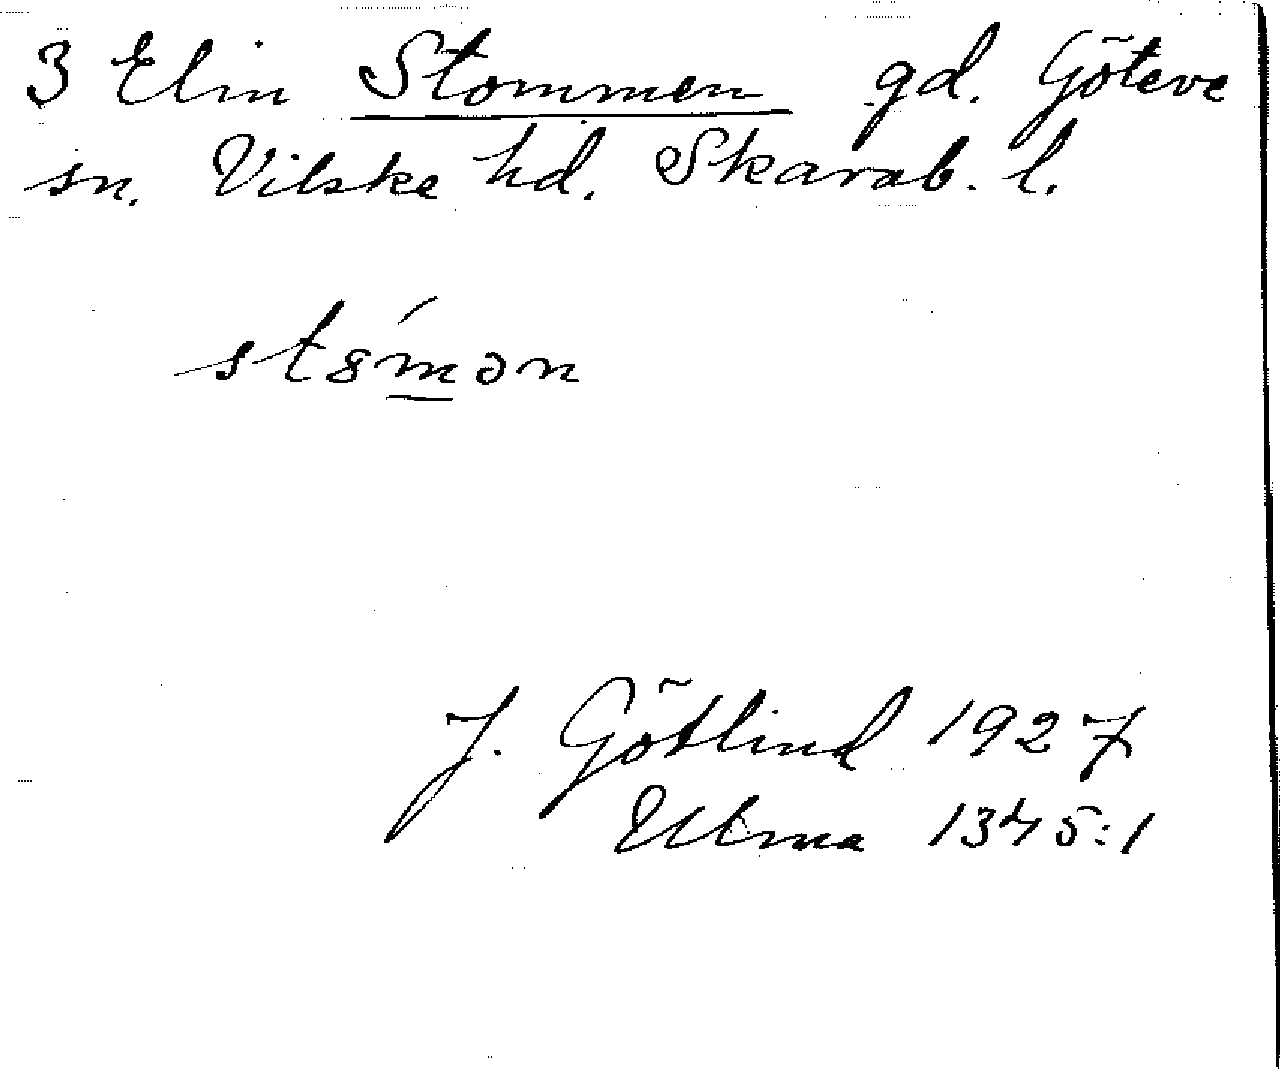 3 Elin Stommen gd. Göteve
sn. Vilske hd. Skarab. l.
st8́mən
J. Götlind 1927
Ulma 1345:1